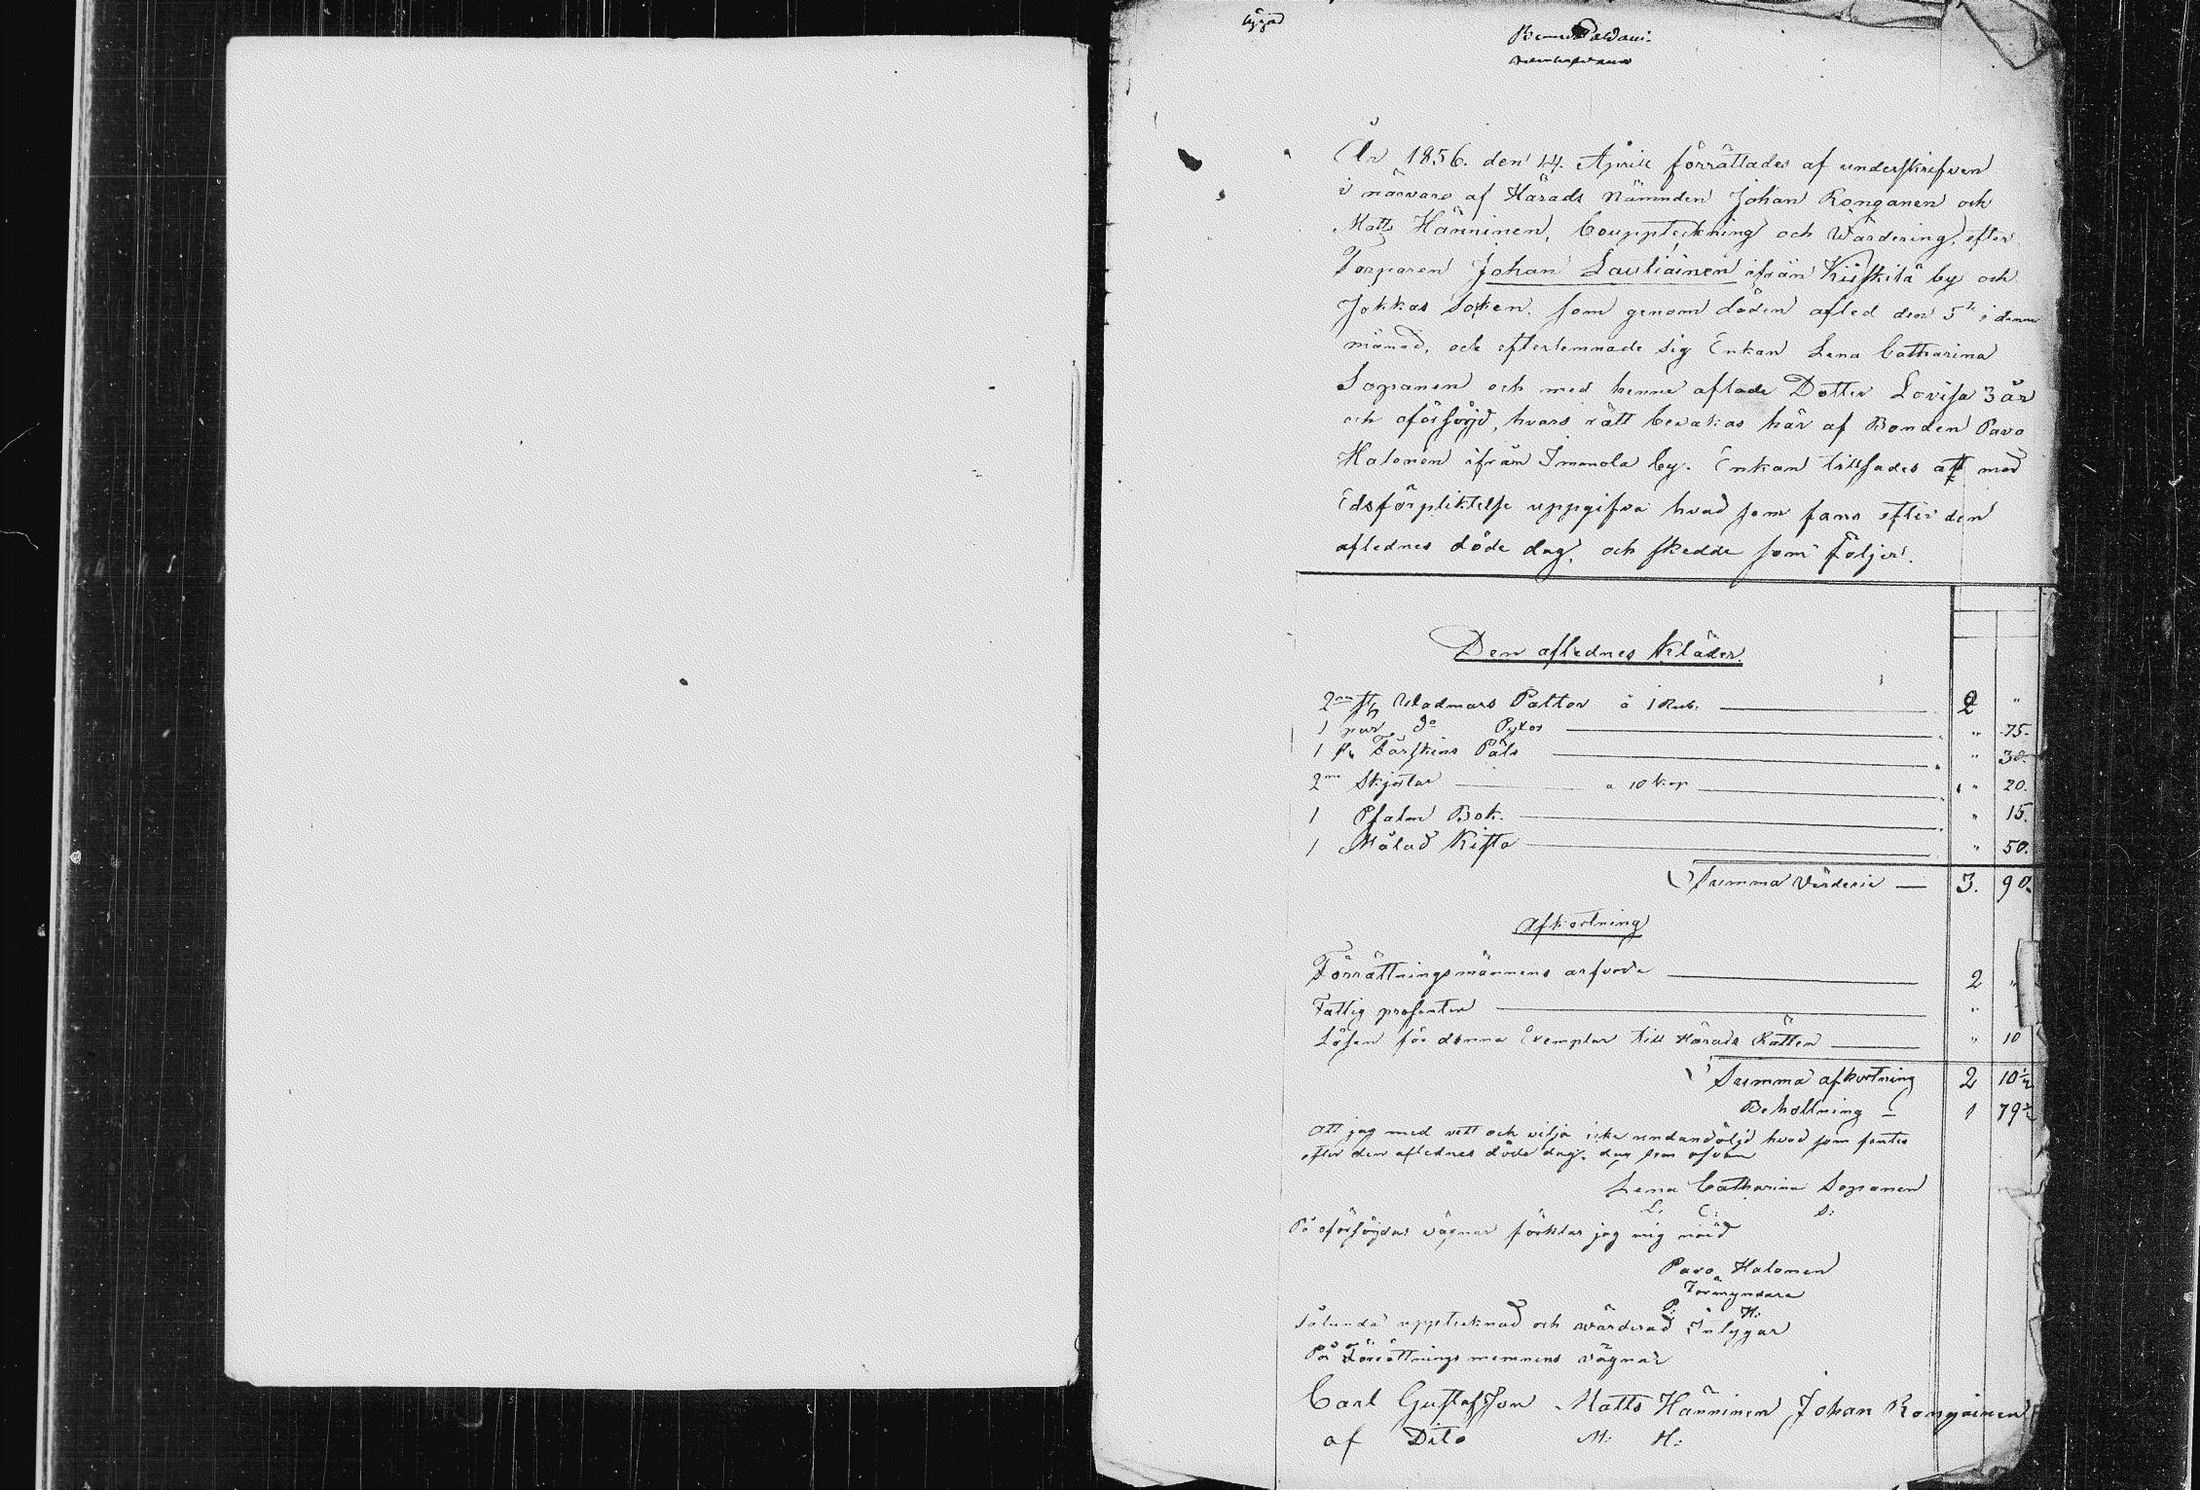 År 1856. den 14. April förrättades af underskrifven
i närvaro af Härads Nämnden Johan Ronganen och
Matts Hänninen, Bouppteckning och Wärdering, efter
Torparen Johan Lautiainen ifrån Kiiskilä by och
Jokkas Soken. som genom döden afled den 5te i denna
månad, och efterlemnade sig Enkan Lena Catharina
Sopanen och med henne aflade Dotter Lovisa 3 år
och oförsörjd, hvars rätt bevakas här af Bonden Pavo
Halonen ifrån Immola by. Enkan tillsades att med
Edsförpliktelse uppgifva hvad som fans efter den
aflednes döde dag, och skedde som följer.
Den aflednes Kläder.
2ne st Wadmars Paltor à 1 Rub. 2 "
1 par do Pxor " 75.
1 st Fårskins Päls " 30.
2ne Skjortor a 10 kop " 20.
1 Psalm Bok. " 15.
1 Målad Kista " 50.
Summa Värderie 3. 90.
Afkortning
Förrättningsmännens arfvode 2 "
Fattig prosenten "
Lösen för denna Exemplar till Härads Rätten " 10
Summa afkortning 2 10½
Behollning 1 79½
Att jag med vett och vilja icke undandöljd hvad som fantes
efter den aflednes döde dag,
Lena Catharina Sopanen
L: C: S:
På oförsörjdas vägnar förklar jag mig nöjd
Pavo Halonen
Förmyndare
P: H:
Sålunda upptecknad och wärderad Intygar
På Förrättnings mennens vägnar
Carl Gustafsson Matts Hänninen Johan Rongainen
af Dito M: H: